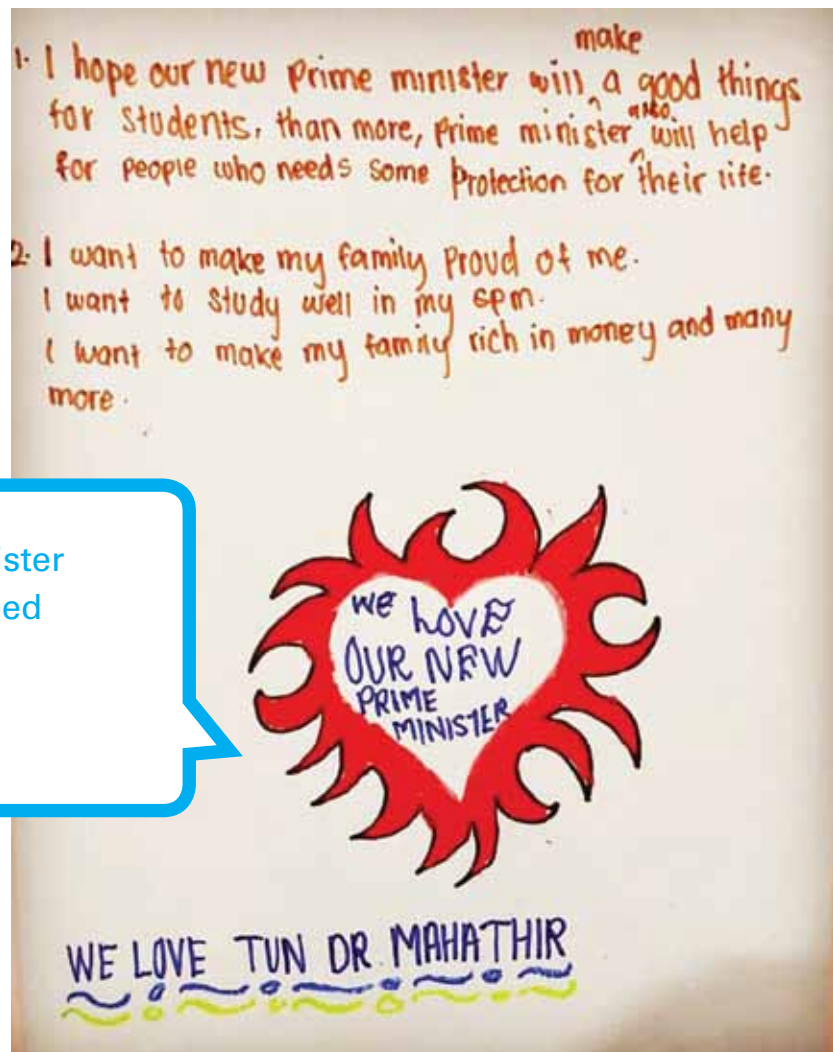 1. I hope our new prime minister will make a good things
for students, than more, prime minister also will help
for people who needs some protection for their life.
2. I want to make my family proud of me.
I want to study well in my spm.
I want to make my family rich in money and many
more.
ster
ed
WE LOVE
OUR NEW
PRIME
MINISTER
WE LOVE TUN DR. MAHATHIR